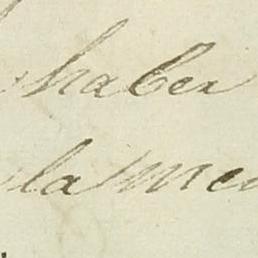 haber
la me